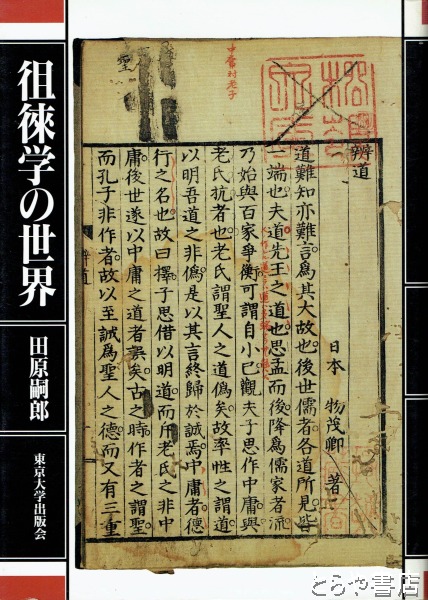 徂徠学の世界
田原嗣郎
東京大学出版会
辨道
日本 物茂卿 著
道難知亦難言爲其大故也後世儒者各道所見皆
一端也夫道先王之道也思孟而後降爲儒家者流
乃始與百家爭衡可謂自小已觀夫子思作中庸與
老氏抗者也老氏謂聖人之道僞矣故率性之謂道
以明吾道之非僞是以其言終歸於誠焉中庸者德
行之名也故曰擇子思借以明道而斥老氏之非中
庸後世遂以中庸之道者誤矣古之時作者之謂聖
而孔子非作者故以至誠爲聖人之德而又有三重
辨道
聖
とらや書店